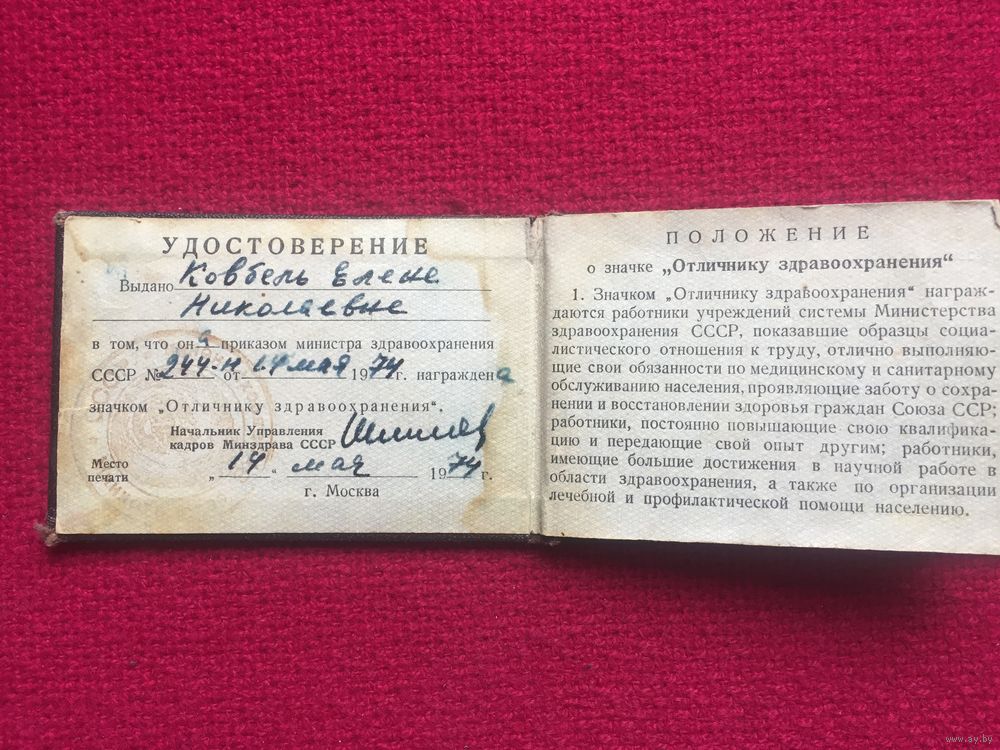 УДОСТОВЕРЕНИЕ
Выдано Ковбель Елене
Николаевне
в том, что она приказом министра здравоохранения
СССР № 244-н от 14 мая 1974 г. награждена
значком „Отличнику здравоохранения“.
Начальник Управления
кадров Минздрава СССР
Место
печати
„14“ мая 1974 г.
г. Москва
ПОЛОЖЕНИЕ
о значке „Отличнику здравоохранения“
1. Значком „Отличнику здравоохранения“ награж-
даются работники учреждений системы Министерства
здравоохранения СССР, показавшие образцы социа-
листического отношения к труду, отлично выполняю-
щие свои обязанности по медицинскому и санитарному
обслуживанию населения, проявляющие заботу о сохра-
нении и восстановлении здоровья граждан Союза ССР;
работники, постоянно повышающие свою квалифика-
цию и передающие свой опыт другим; работники,
имеющие большие достижения в научной работе в
области здравоохранения, а также по организации
лечебной и профилактической помощи населению.
www.ay.by